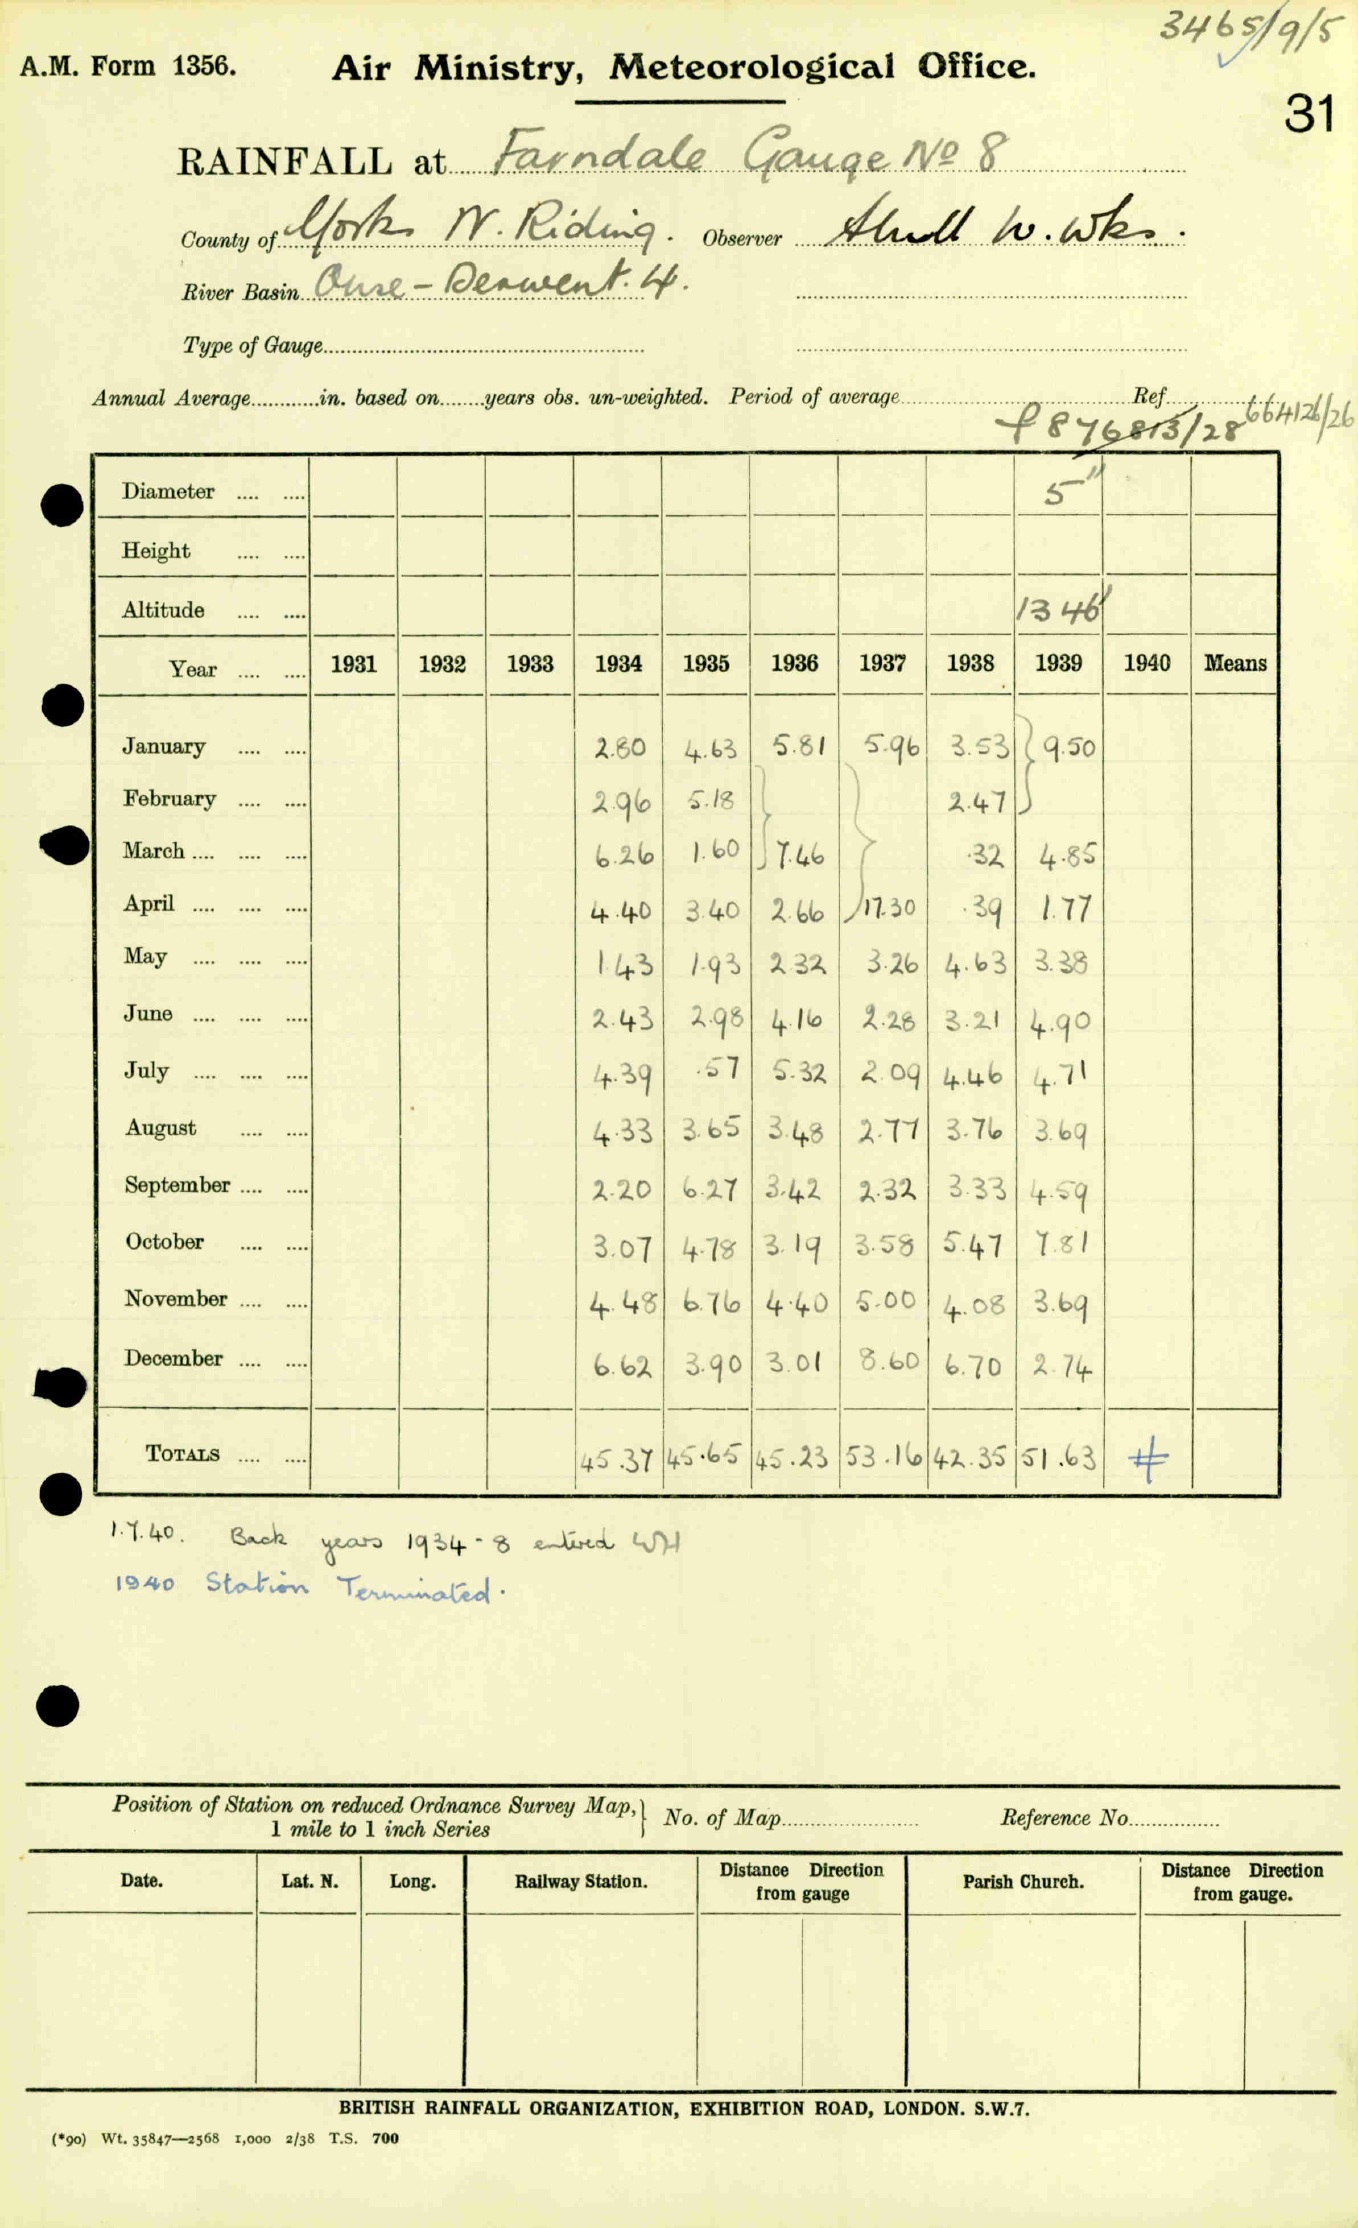 3465/9/5
A.M. Form 1356. Air Ministry, Meteorological Office.
31
RAINFALL at Farndale Gauge No 8
County of Yorks N. Riding. Observer W. Wks.
River Basin Ouse - Derwent. 4.
Type of Gauge
Annual Average in. based on years obs. un-weighted. Period of average Ref 664126/26
876813/28
Diameter 5"
Height
Altitude 1346'
Year 1931 1932 1933 1934 1935 1936 1937 1938 1939 1940 Means
January 2.80 4.63 5.81 5.96 3.53 } 9.50
February 2.96 5.18 2.47
March 6.26 1.60 } 7.46 .32 4.85
April 4.40 3.40 2.66 } 17.30 .39 1.77
May 1.43 1.93 2.32 3.26 4.63 3.38
June 2.43 2.98 4.16 2.28 3.21 4.90
July 4.39 .57 5.32 2.09 4.46 4.71
August 4.33 3.65 3.48 2.77 3.76 3.69
September 2.20 6.27 3.42 2.32 3.33 4.59
October 3.07 4.78 3.19 3.58 5.47 7.81
November 4.48 6.76 4.40 5.00 4.08 3.69
December 6.62 3.90 3.01 8.60 6.70 2.74
TOTALS 45.37 45.65 45.23 53.16 42.35 51.63 #
1.7.40. Back years 1934-8 entered WH
1940 Station Terminated.
Position of Station on reduced Ordnance Survey Map, } No. of Map Reference No
1 mile to 1 inch Series
Date. Lat. N. Long. Railway Station. Distance Direction from gauge Parish Church. Distance Direction from gauge.
BRITISH RAINFALL ORGANIZATION, EXHIBITION ROAD, LONDON. S.W.7.
(*90) Wt. 35847—2568 1,000 2/38 T.S. 700